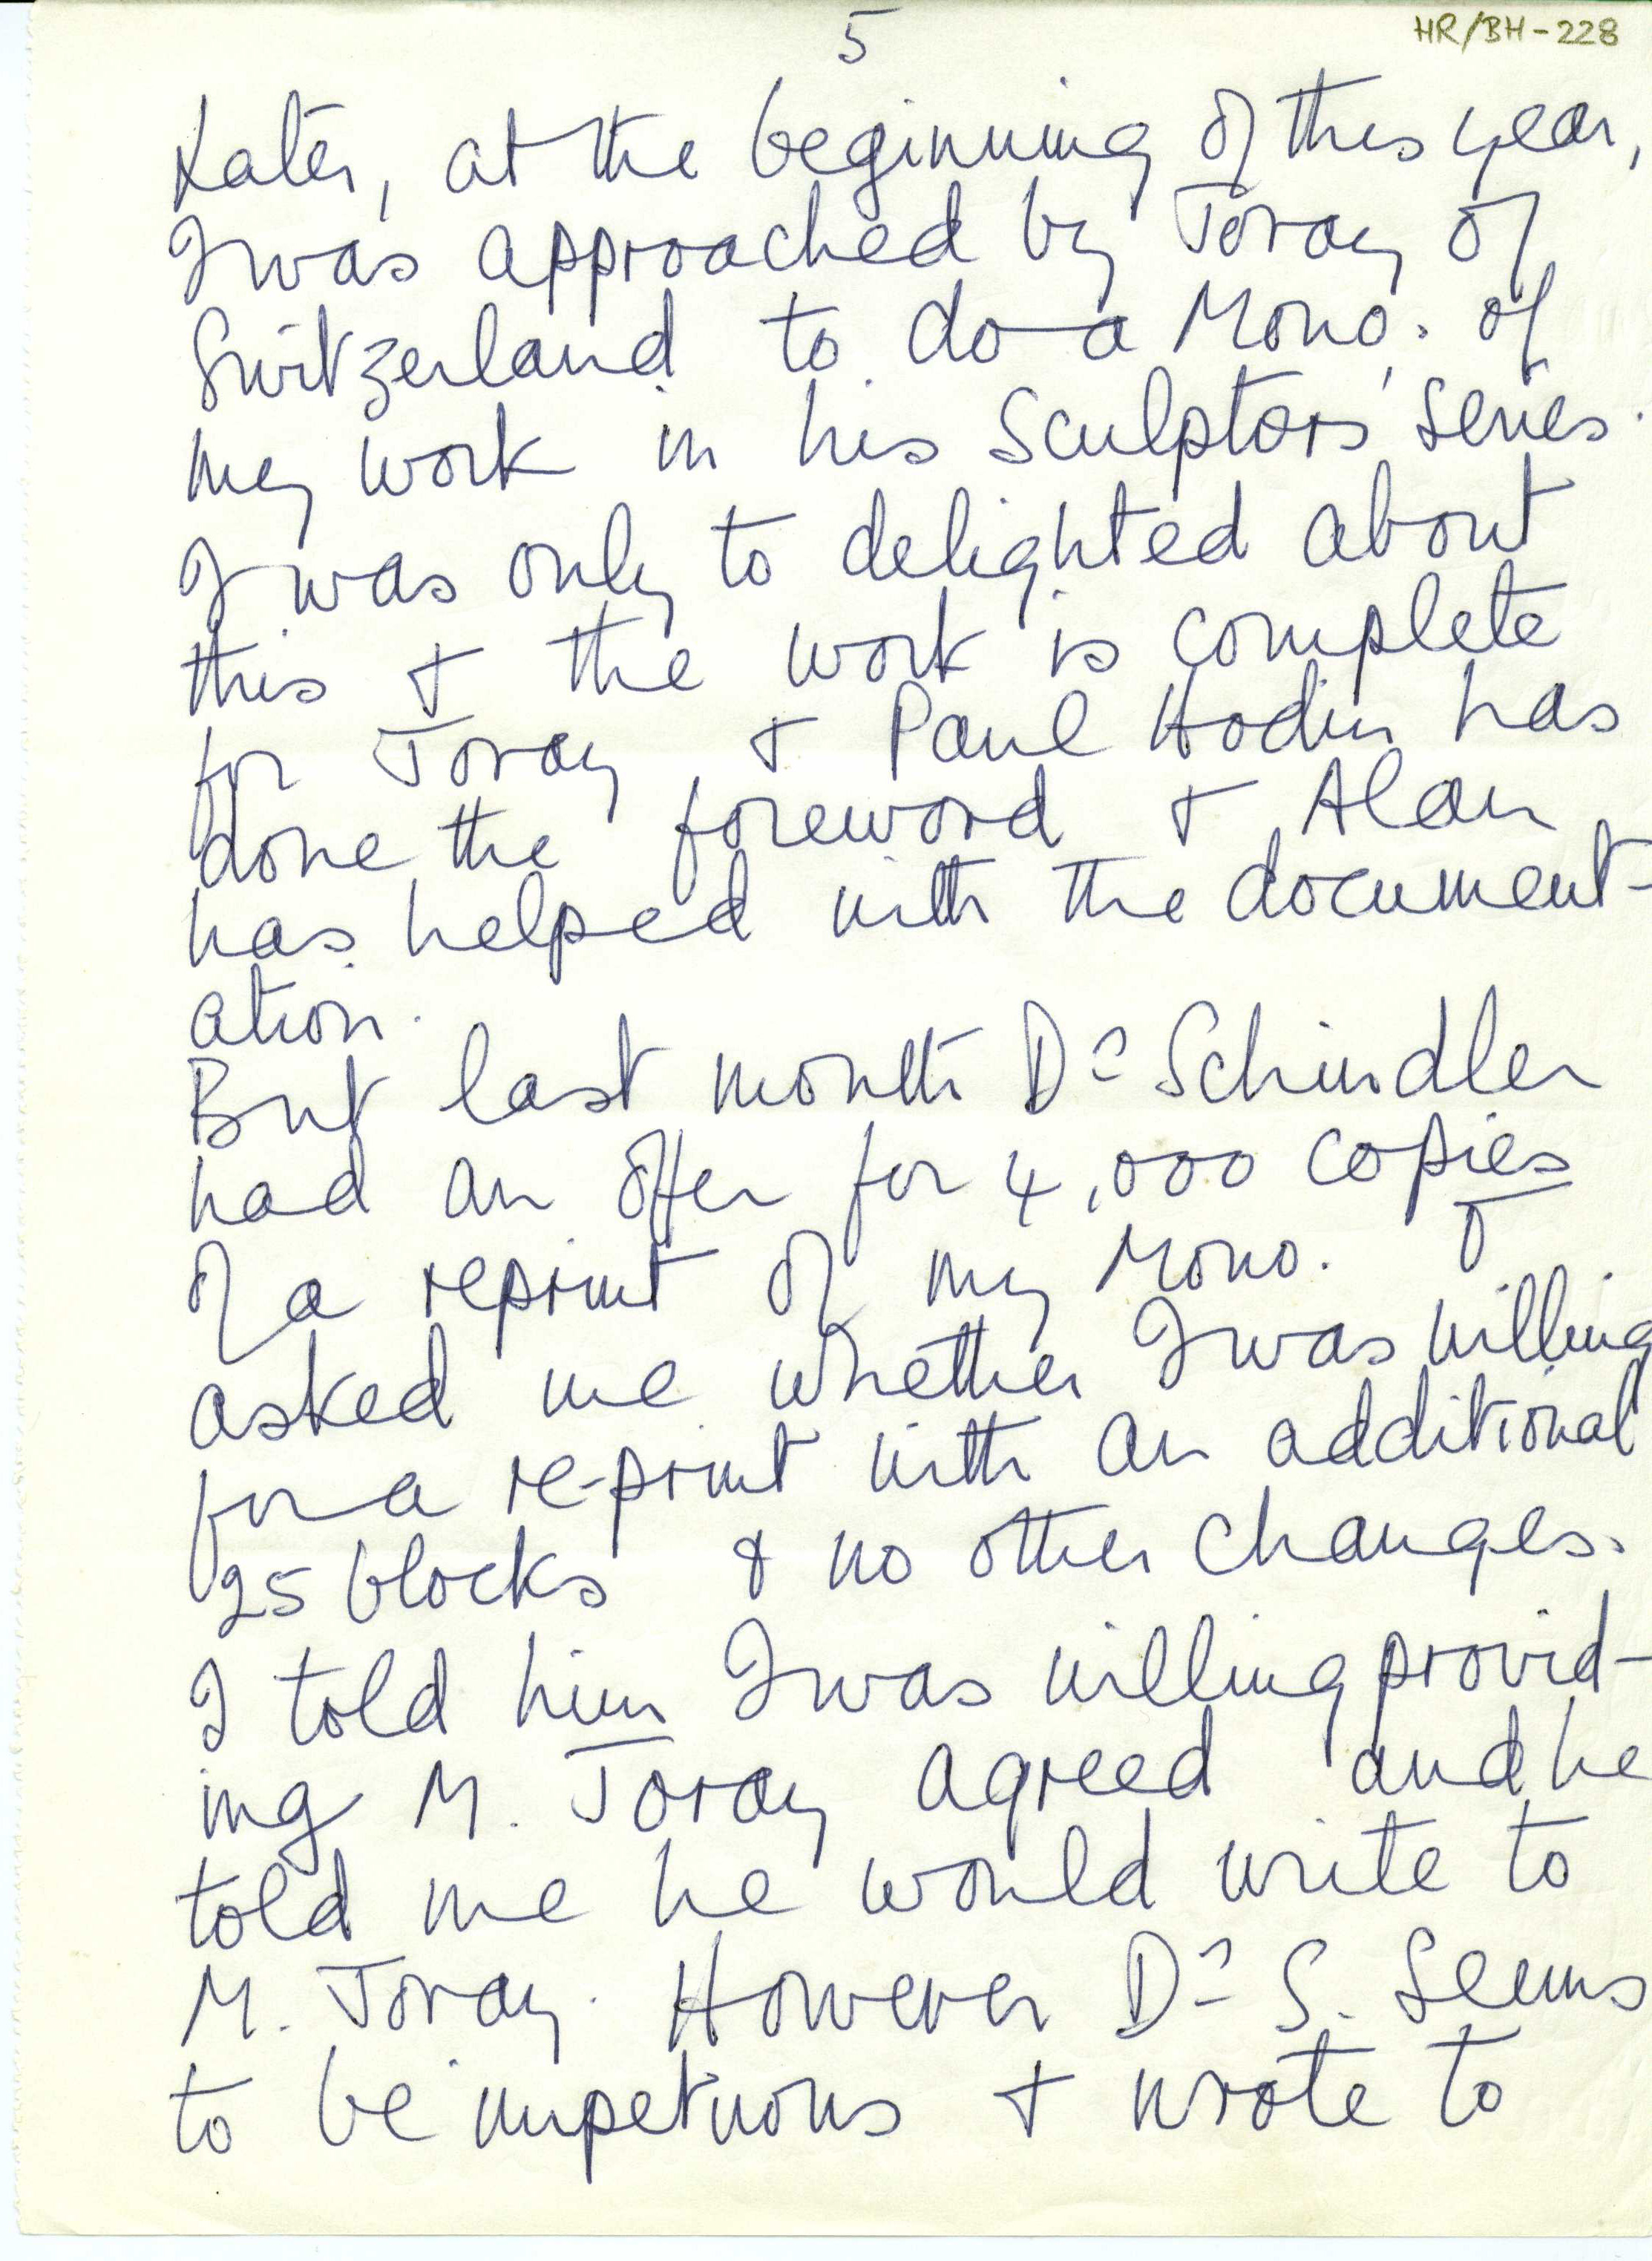 5
HR/BH-228
Later, at the beginning of this year,
I was approached by Joray of
Switzerland to do a Mono. of
my work in his Sculptors' series.
I was only to delighted about
this + the work is complete
for Joray + Paul Hodin has
done the foreword + Alan
has helped with the document-
ation.
But last month Dr Schindler
had an offer for 4,000 copies
of a reprint of my Mono. +
asked me whether I was willing
for a re-print with an additional
25 blocks & no other changes.
I told him I was willing provid-
ing M. Joray agreed and he
told me he would write to
M. Joray. However Dr S. seems
to be impetuous + wrote to